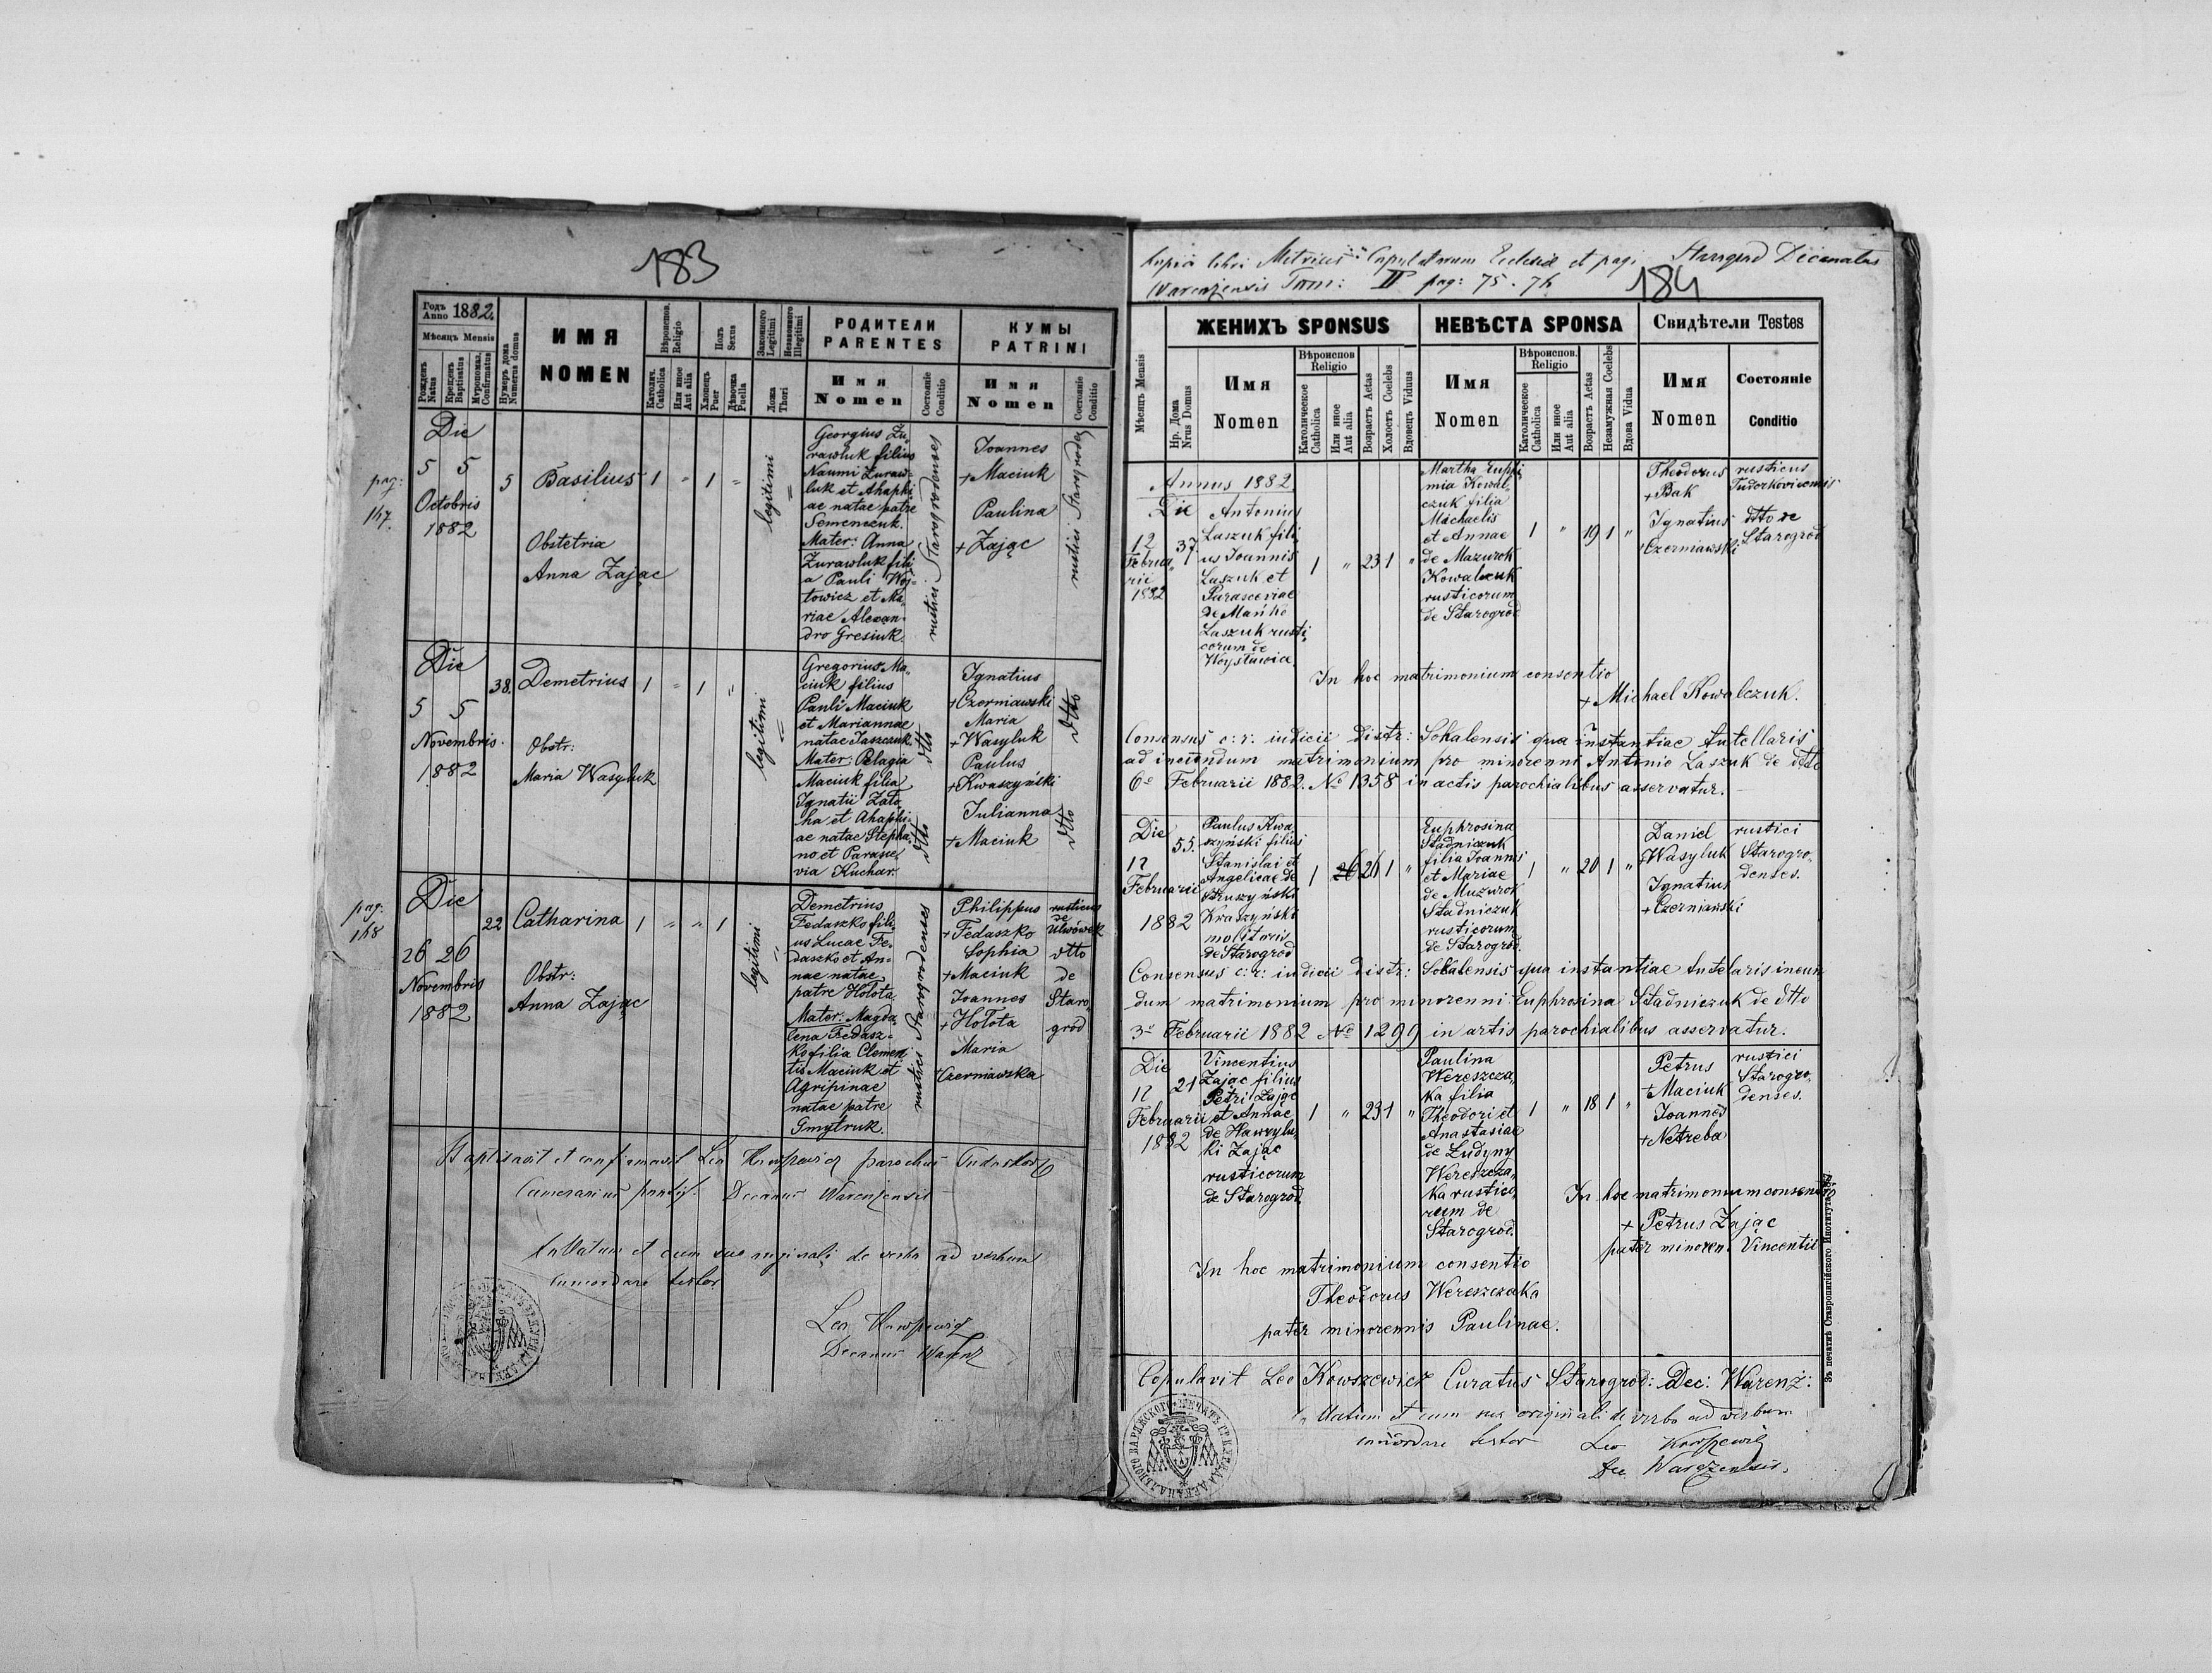 183
Годъ Anno 1882.
Мѣсяцъ Mensis
Рожденъ Natus
Крещенъ Baptisatus
Муропомаз. Confirmatus
Нумеръ дома Numerus domus
ИМЯ
NOMEN
Вѣроиспов. Religio
Католич. Catholica
Или иное Aut alia
Полъ Sexus
Хлопецъ Puer
Дѣвочка Puella
Законного Legitimi
Незаконного Illegitimi
Ложа Thori
РОДИТЕЛИ
PARENTES
Имя
Nomen
Состояніе Conditio
КУМЫ
PATRINI
Имя
Nomen
Состояніе Conditio
pag:
147.
Die
5 5
Octobris
1882
5
Basilius
1 " 1 "
Obstetrix
Anna Zając
legitimi
Georgius Żu-
rawluk filius
Naumi Żuraw-
luk et Ahaphi-
ae natae patre
Semenczuk.
Mater: Anna
Żurawluk fili-
a Pauli Woj-
towicz et Ma-
riae Alexan-
dro Gresiuk.
rustici Starogrodenses
Joannes
+ Maciuk
Paulina
+ Zając
rustici Starogrodens
Die
5 5
Novembris
1882
38.
Demetrius
1 " 1 "
Obstr:
Maria Wasyluk
legitimi
Gregorius Ma-
ciuk filius
Pauli Maciuk
et Mariannae
natae Jaszczuk
Mater: Pelagia
Maciuk filia
Ignatii Zato-
ha et Ahaphi-
ae natae Stepha-
no et Parasce-
via Kuchar.
dtto
dtto
Ignatius
+ Czerniawski
Maria
+ Wasyluk
Paulus
+ Kwaszyński
Julianna
+ Maciuk
dtto
dtto
pag:
148
Die
26 26
Novembris
1882
22
Catharina
1 " " 1
Obstr:
Anna Zając
legitimi
Demetrius
Fedaszko fili-
us Lucae Fe-
daszko et An-
nae natae
patre Hołota
Mater: Magda-
lena Fedasz-
ko filia Clemen-
tis Maciuk et
Agripinae
natae patre
Gmytruk.
rustici Starogrodenses
Philippus
+ Fedaszko
Sophia
+ Maciuk
Joannes
+ Hołota
Maria
+ Czerniawska
rusticus
de
Ulwówek
dtto
de
Staro-
gród
Baptisavit et confirmavit Leo parochus
Camerarius Decanus Warenzensis
et cum suo originali de verbo ad verbum
concordare testor
Leo
Decanus Warenz
Kopia libri Metrices Copulatorum Ecclesiae et pagi Starogrod Decanatus
Warenzensis Tom: II pag: 75. 76
184
Мѣсяцъ Mensis
Нр. Дома Nrus Domus
ЖЕНИХЪ SPONSUS
Имя
Nomen
Вѣроиспов Religio
Католическое Catholica
Или иное Aut alia
Возрастъ Aetas
Холостъ Coelebs
Вдовецъ Viduus
НЕВѢСТА SPONSA
Имя
Nomen
Вѣроиспов. Religio
Католическое Catholica
Или иное Aut alia
Возрастъ Aetas
Незамужная Coelebs
Вдова Vidua
Свидѣтели Testes
Имя
Nomen
Состояніе
Conditio
Annus 1882
Die
12
Februa-
rii
1882
37
Antonius
Laszuk fili-
us Joannis
Laszuk et
Parasceviae
de Mańko
Laszuk rusti-
corum de
Woysławice
1 " 23 1 "
Martha Euphi-
mia Kowal-
czuk filia
Michaelis
et Annae
de Mazurok
Kowalczuk
rusticorum
de Starogrod
1 " 19 1 "
Theodorus
+ Bak
Ignatius
Czerniawski
rusticus
Tudorkovicensis
dtto de
Starogrod
In hoc matrimonium consentio
+ Michael Kowalczuk.
Consensus c: r: iudicii distr: Sokalensis qua instantiae Tutellaris
ad ineundum matrimonium pro minorenni Antonio Laszuk de dtto
6e Februarii 1882. No 1358 in actis parochialibus asservatur.
Die
12
Februarii
1882
55.
Paulus Kwa-
szyński filius
Stanislai et
Angelicae de
Struszyński
Kwaszyński
molitoris
de Starogrod
1 26 26 1 "
Euphrosina
Stadniczuk
filia Joannis
et Mariae
de Muzurok
Stadniczuk
rusticorum
de Starogrod.
1 " 20 1 "
Daniel
+ Wasyluk
Ignatius
+ Czerniawski
rustici
Starogro-
denses.
Consensus c: r: iudicii distr: Sokalensis qua instantiae tutelaris ineun-
dum matrimonium pro minorenni Euphrosina Stadniczuk de dtto
3e Februarii 1882 No 1299 in actis parochialibus asservatur.
Die
12
Februarii
1882
21
Vincentius
Zając filius
Petri Zając
et Annae
de Hawrylu-
ki Zając
rusticorum
de Starogrod
1 " 23 1 "
Paulina
Wereszcza-
ka filia
Theodori et
Anastasiae
de Ludyny
Wereszcza-
ka rustico-
rum de
Starogrod.
1 " 18 1 "
Petrus
+ Maciuk
Joannes
+ Netreba
rustici
Starogro-
denses.
In hoc matrimonium consentio
+ Petrus Zając
pater minoren. Vincentii
In hoc matrimonium consentio
Theodorus Wereszczaka
pater minorennis Paulinae.
Copulavit Leo Kowszewicz Curatus Starogrod: Dec: Warenż:
et cum suo originali de verbo ad verbum
concordare testor Leo Kowszewicz
Dec Warezensis.
Зъ печатнѣ Ставропигійского Института